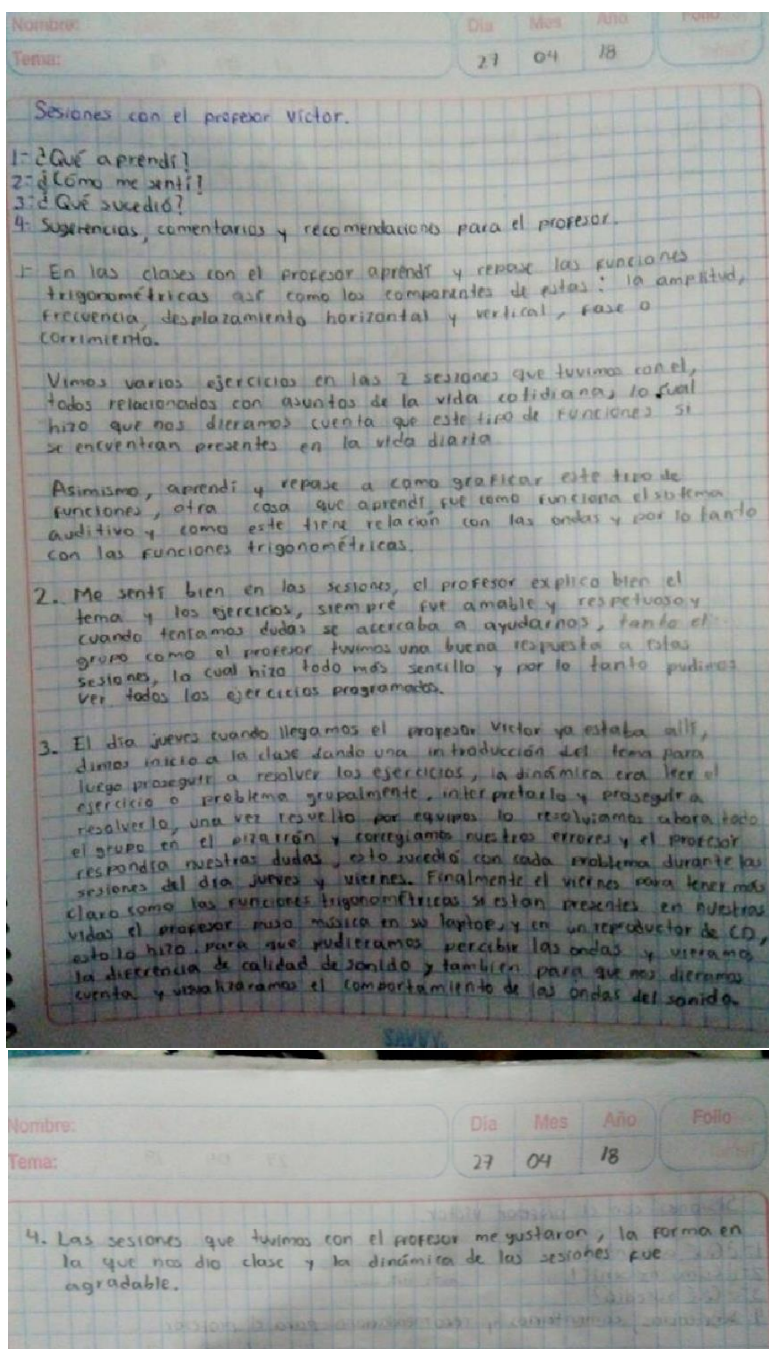 Nombre:
Día Mes Año Folio
Tema:
27 04 18
Sesiones con el profesor Víctor.
1- ¿Qué aprendí?
2- ¿Cómo me sentí?
3- ¿Qué sucedió?
4- Sugerencias, comentarios y recomendaciones para el profesor.
1- En las clases con el profesor aprendí y repase las funciones
trigonométricas así como los componentes de estas: la amplitud,
frecuencia, desplazamiento horizontal y vertical, fase o
corrimiento.
Vimos varios ejercicios en las 2 sesiones que tuvimos con el,
todos relacionados con asuntos de la vida cotidiana, lo cual
hizo que nos dieramos cuenta que este tipo de funciones si
se encuentran presentes en la vida diaria
Asimismo, aprendí y repase a como graficar este tipo de
funciones, otra cosa que aprendí fue como funciona el sistema
auditivo y como este tiene relación con las ondas y por lo tanto
con las funciones trigonométricas.
2. Me sentí bien en las sesiones, el profesor explico bien el
tema y los ejercicios, siempre fue amable y respetuoso y
cuando teníamos dudas se acercaba a ayudarnos, tanto el
grupo como el profesor tuvimos una buena respuesta a estas
sesiones, lo cual hizo todo más sencillo y por lo tanto pudimos
ver todos los ejercicios programados.
3. El día jueves cuando llegamos el profesor Víctor ya estaba allí,
dimos inicio a la clase dando una introducción del tema para
luego proseguir a resolver los ejercicios, la dinámica era leer el
ejercicio o problema grupalmente, interpretarlo y proseguir a
resolverlo, una vez resuelto por equipos lo resolvíamos ahora todo
el grupo en el pizarrón y corregiamos nuestros errores y el profesor
respondía nuestras dudas, esto sucedió con cada problema durante las
sesiones del día jueves y viernes. Finalmente el viernes para tener más
claro como las funciones trigonométricas si estan presentes en nuestras
vidas el profesor puso música en su laptop, y en un reproductor de CD,
esto lo hizo para que pudieramos percibir las ondas y vieramos
la diferencia de calidad de sonido y tambien para que nos dieramos
cuenta y visualizaramos el comportamiento de las ondas del sonido.
SAVVY
Nombre:
Día Mes Año Folio
Tema:
27 04 18
4. Las sesiones que tuvimos con el profesor me gustaron, la forma en
la que nos dio clase y la dinámica de las sesiones fue
agradable.